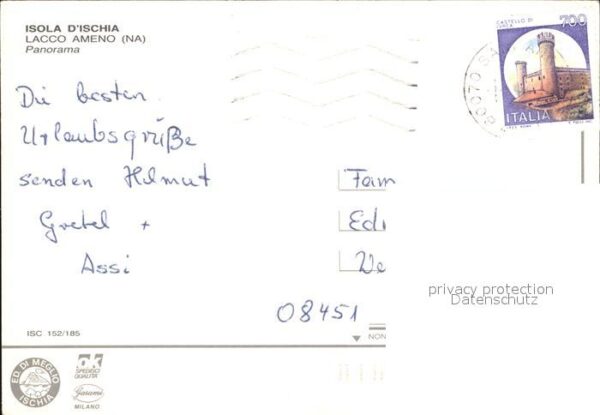 ISOLA D'ISCHIA
LACCO AMENO (NA)
Panorama
Die besten
Urlaubsgrüße
senden Helmut
Gretel +
Assi
CASTELLO DI
IVREA
700
ITALIA
80070 SA
Fam
Edi
We
08451
privacy protection
Datenschutz
ISC 152/185
NON
ED. DI MEGLIO
ISCHIA
OK
SPECIFICI
QUALITÀ
Garami
MILANO